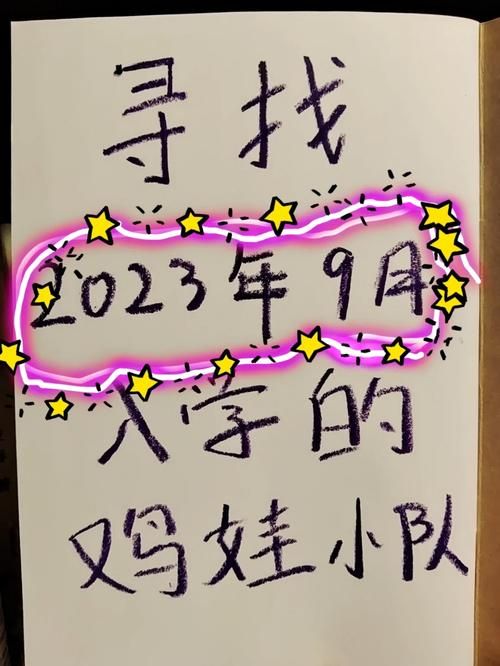 寻找
2023年9月
入学的
鸡娃小队